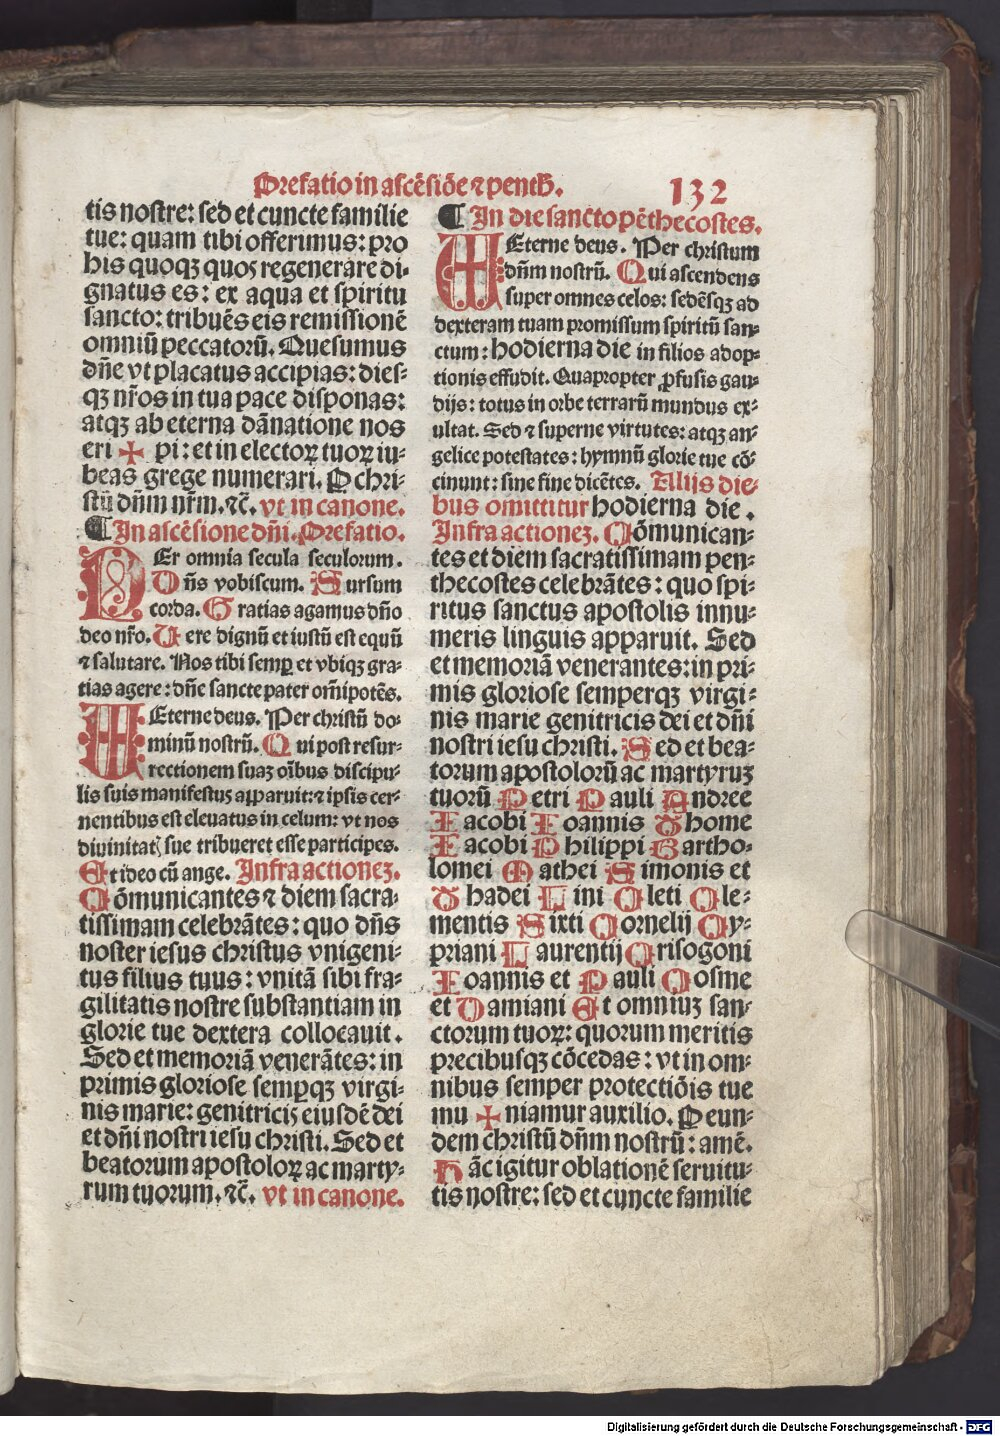 Prefatio in ascẽsiõe ⁊ penth̄.
132
tis nostre: sed et cuncte familie
tue: quam tibi offerimus: pro
his quoqꝫ quos regenerare di-
gnatus es: ex aqua et spiritu
sancto: tribuẽs eis remissionẽ
omniũ peccatorũ. Quesumus
dñe vt placatus accipias: dies-
qꝫ nr̃os in tua pace disponas:
atqꝫ ab eterna dãnatione nos
eri ✚ pi: et in electoꝝ tuoꝝ iu-
beas grege numerari. P chri-
stũ dñm nr̃m. ⁊c̃. vt in canone.
¶ In ascẽsione dñi. Prefatio.
PEr omnia secula seculorum.
Dñs vobiscum. Sursum
corda. Gratias agamus dño
deo nr̃o. Vere dignũ et iustũ est equũ
⁊ salutare. Nos tibi semꝑ et vbiqꝫ gra-
tias agere: dñe sancte pater om̃ipotẽs.
Eterne deus. Per christũ do-
minũ nostrũ. Qui post resur-
rectionem suaꝫ oĩbus discipu-
lis suis manifestus apparuit: ⁊ ipsis cer-
nentibus est eleuatus in celum: vt nos
diuinitatꝭ sue tribueret esse participes.
Et ideo cũ ange. Infra actioneꝫ.
Cõmunicantes ⁊ diem sacra-
tissimam celebrãtes: quo dñs
noster iesus christus vnigeni-
tus filius tuus: vnitã sibi fra-
gilitatis nostre substantiam in
glorie tue dextera collocauit.
Sed et memoriã venerãtes: in
primis gloriose semꝑqꝫ virgi-
nis marie: genitricis eiusdẽ dei
et dñi nostri iesu christi. Sed et
beatorum apostoloꝝ ac marty-
rum tuorum. ⁊c̃. vt in canone.
¶ In die sancto pẽthecostes.
Eterne deus. Per christum
dñm nostrũ. Qui ascendens
super omnes celos: sedẽsqꝫ ad
dexteram tuam promissum spiritũ san-
ctum: hodierna die in filios adop-
tionis effudit. Quapropter ꝓfusis gau-
dijs: totus in orbe terrarũ mundus ex-
ultat. Sed ⁊ superne virtutes: atqꝫ an-
gelice potestates: hymnũ glorie tue cõ-
cinunt: sine fine dicẽtes. Allijs die-
bus omittitur hodierna die.
Infra actioneꝫ. Cõmunican-
tes et diem sacratissimam pen-
thecostes celebrãtes: quo spi-
ritus sanctus apostolis innu-
meris linguis apparuit. Sed
et memoriã venerantes: in pri-
mis gloriose semperqꝫ virgi-
nis marie genitricis dei et dñi
nostri iesu christi. Sed et bea-
torum apostolorũ ac martyruꝫ
tuorũ Petri Pauli Andree
Iacobi Ioannis Thome
Iacobi Philippi Bartho-
lomei Mathei Simonis et
Thadei Lini Cleti Cle-
mentis Sixti Cornelij Cy-
priani Laurentij Crisogoni
Ioannis et Pauli Cosme
et Damiani Et omniuꝫ san-
ctorum tuoꝝ: quorum meritis
precibusqꝫ cõcedas: vt in om-
nibus semper protectiõis tue
mu ✚ niamur auxilio. P eun-
dem christũ dñm nostrũ: amẽ.
Hãc igitur oblationẽ seruitu-
tis nostre: sed et cuncte familie
Digitalisierung gefördert durch die Deutsche Forschungsgemeinschaft - DFG